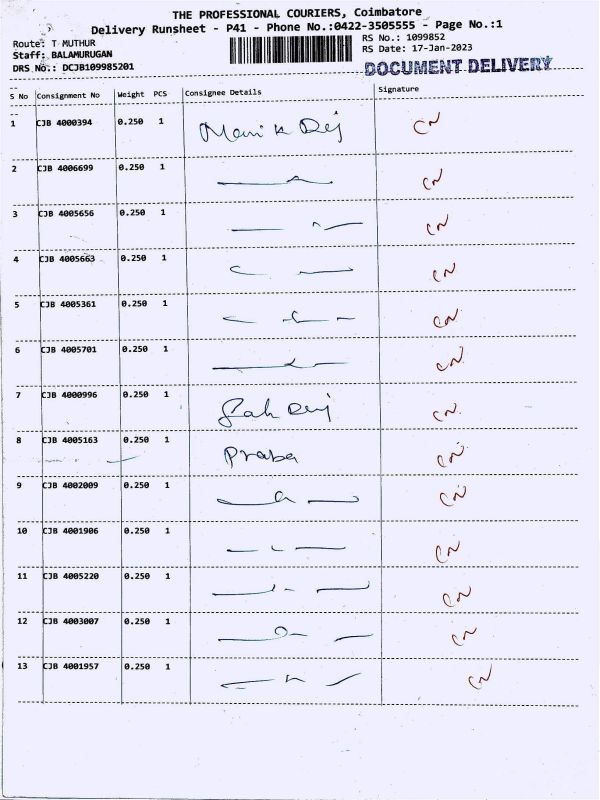 THE PROFESSIONAL COURIERS, Coimbatore
Delivery Runsheet - P41 - Phone No.:0422-3505555 - Page No.:1
Route: T MUTHUR
RS No.: 1099852
Staff: BALAMURUGAN
RS Date: 17-Jan-2023
DRS No.: DCJB109985201
DOCUMENT DELIVERY
S No Consignment No Weight PCS Consignee Details Signature
1 CJB 4000394 0.250 1 CN
2 CJB 4006699 0.250 1 CN
3 CJB 4005656 0.250 1 CN
4 CJB 4005663 0.250 1 CN
5 CJB 4005361 0.250 1 CN
6 CJB 4005701 0.250 1 CN
7 CJB 4000996 0.250 1 CN
8 CJB 4005163 0.250 1 Praba CN
9 CJB 4002009 0.250 1 CN
10 CJB 4001906 0.250 1 CN
11 CJB 4005220 0.250 1 CN
12 CJB 4003007 0.250 1 CN
13 CJB 4001957 0.250 1 CN